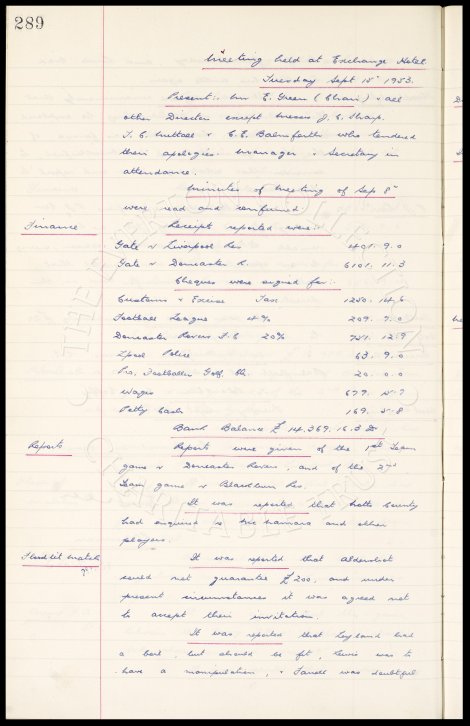 289
Meeting held at Exchange Hotel
Tuesday Sept 15" 1953.
Present:- Mr E. Green (Chair) & all
other Directors except Messrs J. C. Sharp.
T. C. Nuttall & C. E. Balmforth who tendered
their apologies. Manager & Secretary in
attendance.
Minutes of Meeting of Sep 8"
were read and confirmed
Finance
Receipts reported were:-
Gate v Liverpool Res 401. 9. 0
Gate v Doncaster R. 6101. 11. 3
Cheques were signed for:-
Customs & Excise Tax
Football League 4% 209. 7. 0
Doncaster Rovers F.C 20% 731. 12. 9
Lpool Police 63. 9. 0
Pro. Footballer Golf Ch. 20. 0. 0
Wages 679. 15. 7
Petty Cash 169. 5. 8
Bank Balance £14,369. 16. 3
Reports
Reports were given of the 1st Team
game v Doncaster Rovers, and of the 2nd
Team game v Blackburn Res.
It was reported that Notts County
had enquired re McNamara and other
players.
Floodlit Match
It was reported that Aldershot
could not guarantee £200, and under
present circumstances it was agreed not
to accept their invitation.
It was reported that Leyland had
a boil, but should be fit, Lewis was to
have a manipulation, & Farrell was doubtful
THE EVERTON COLLECTION
CHARITABLE TRUST